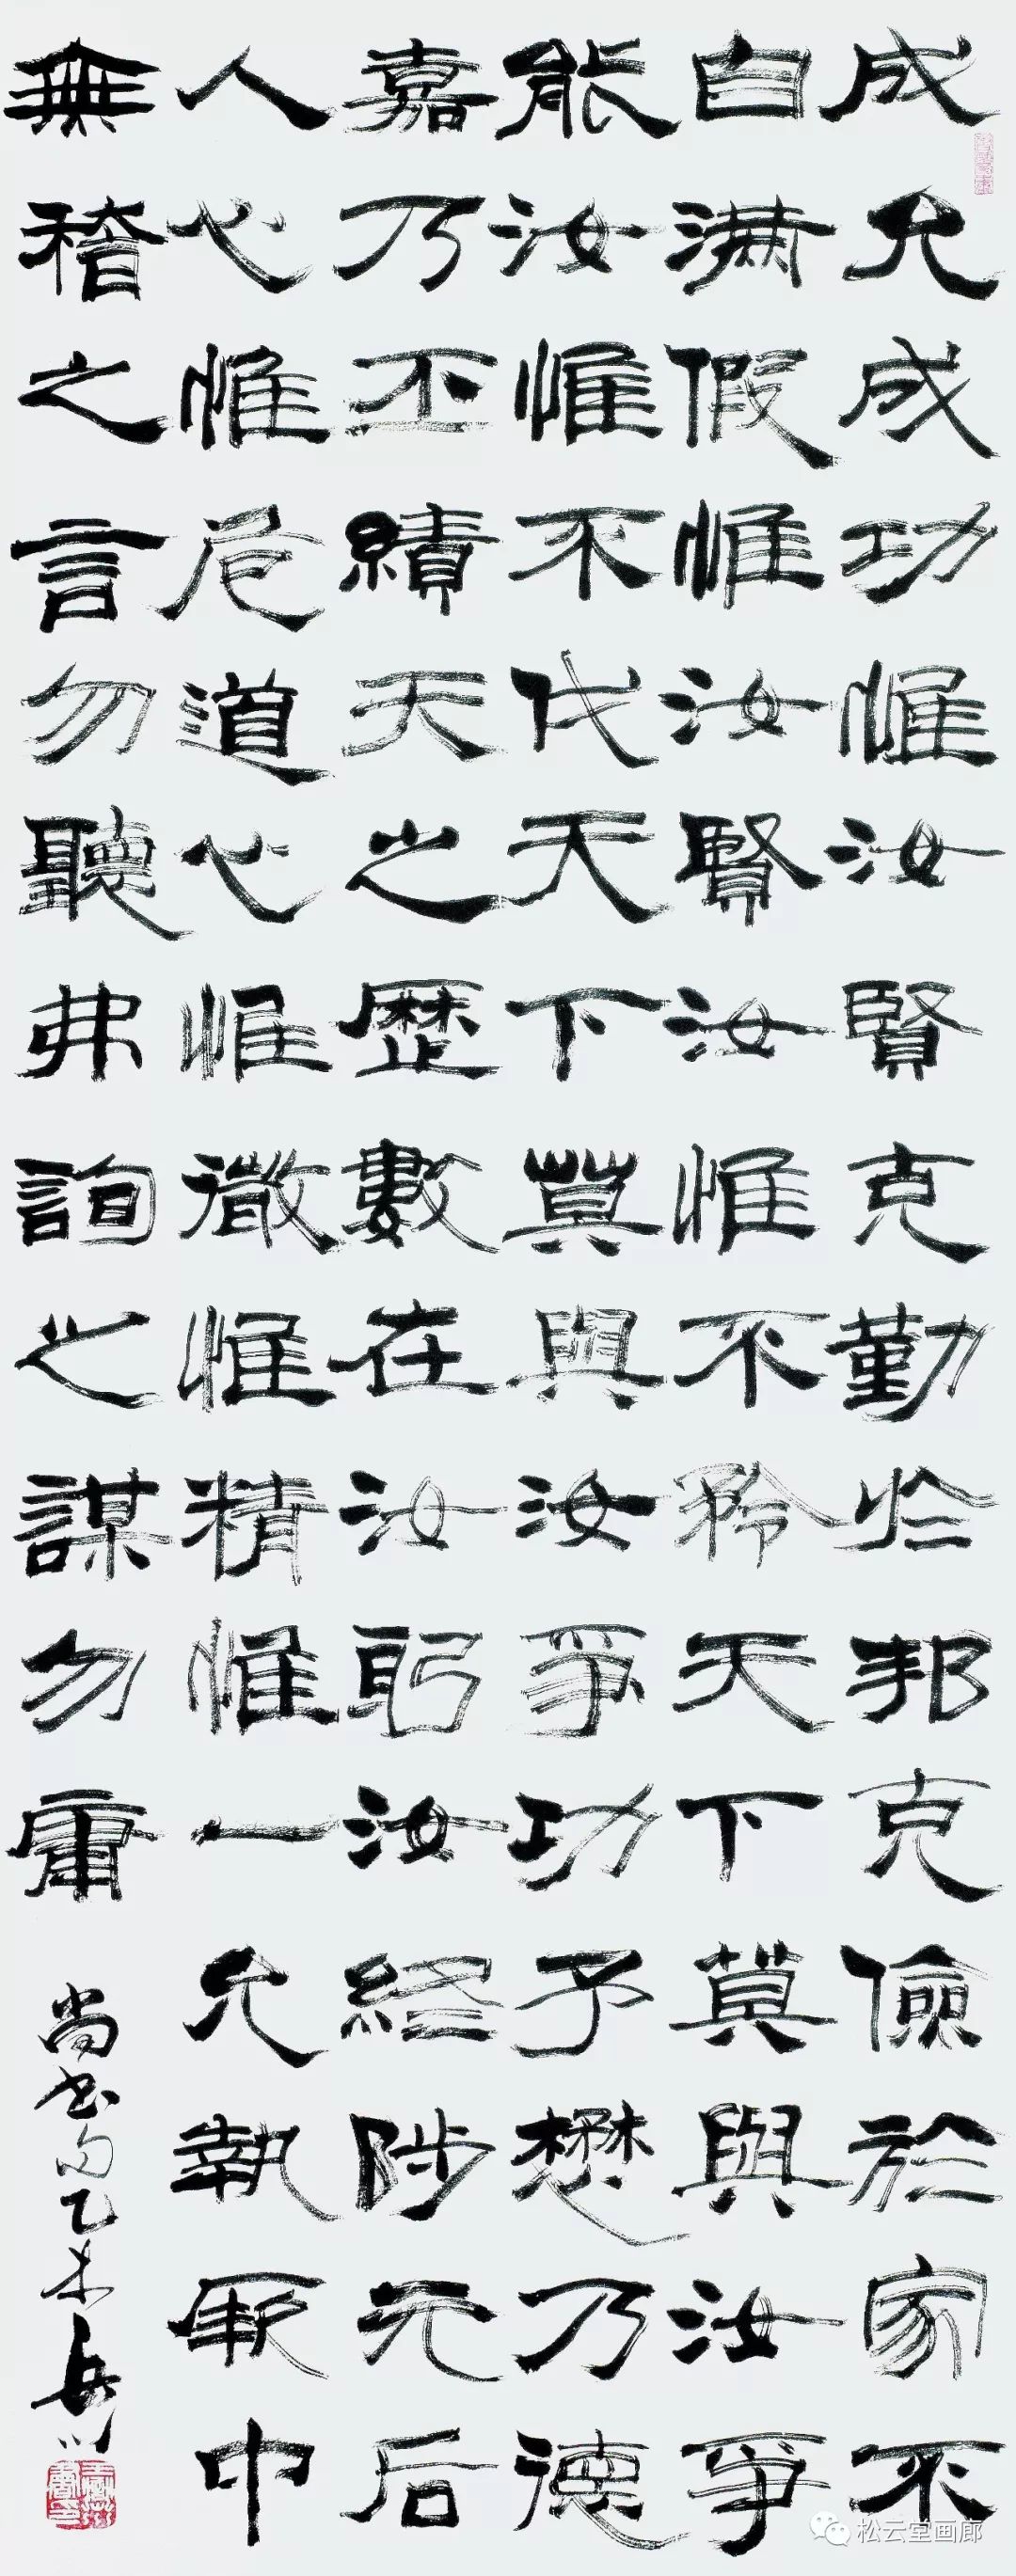 成允成功惟汝賢克勤於邦克儉於家不
自滿假惟汝賢汝惟不矜天下莫與汝爭
能汝惟不伐天下莫與汝爭功予懋乃德
嘉乃丕績天之歷數在汝躬汝終陟元后
人心惟危道心惟微惟精惟一允執厥中
無稽之言勿聽弗詢之謀勿庸
尚書句乙未岳川
松云堂画廊